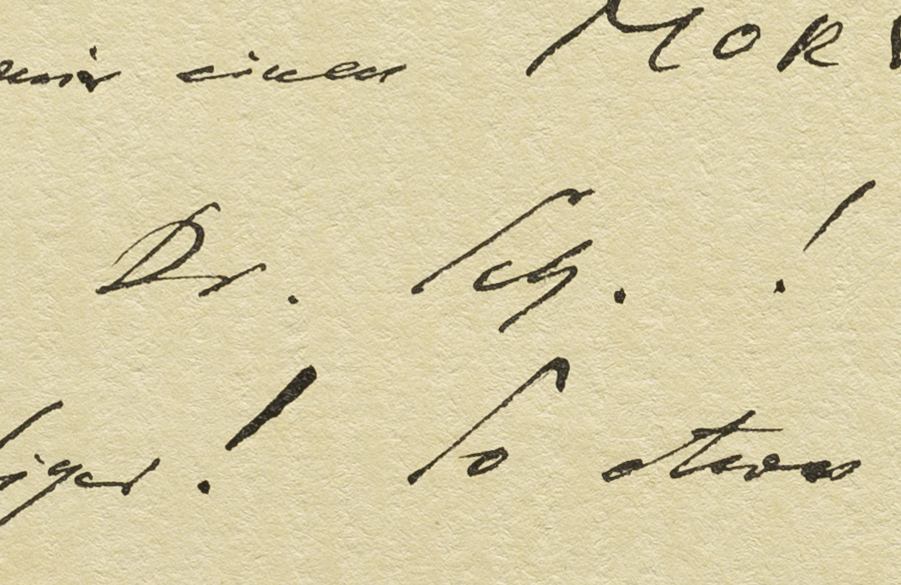 einen MOR
Dr. Sch. !
! So etwas